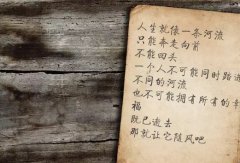 人生就像一条河流
只能奔走向首
不能回头
一个人不可能同时踏进
不同的河流
也不可能拥有所有的幸
福
既已逝去
那就让它随风吧